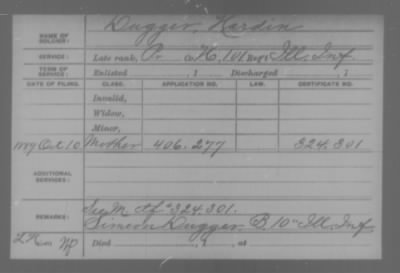 NAME OF SOLDIER: Dugger, Hardin
SERVICE: Late rank, Pr. Co. H, 101 Reg't Ill. Inf.
TERM OF SERVICE: Enlisted , 1 Discharged , 1
DATE OF FILING. CLASS. APPLICATION NO. LAW. CERTIFICATE NO.
Invalid,
Widow,
Minor,
1889 Oct 10 Mother 406.277 324.301
ADDITIONAL SERVICES:
REMARKS: See M ctf # 324.301.
Simeon Dugger B. 10" Ill. Inf.
Died , 1 , at